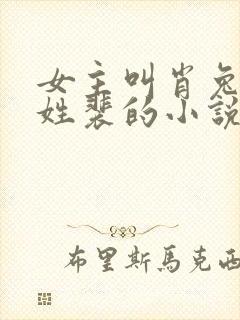 女主叫肖兔
姓裴的小說
布里斯馬克西